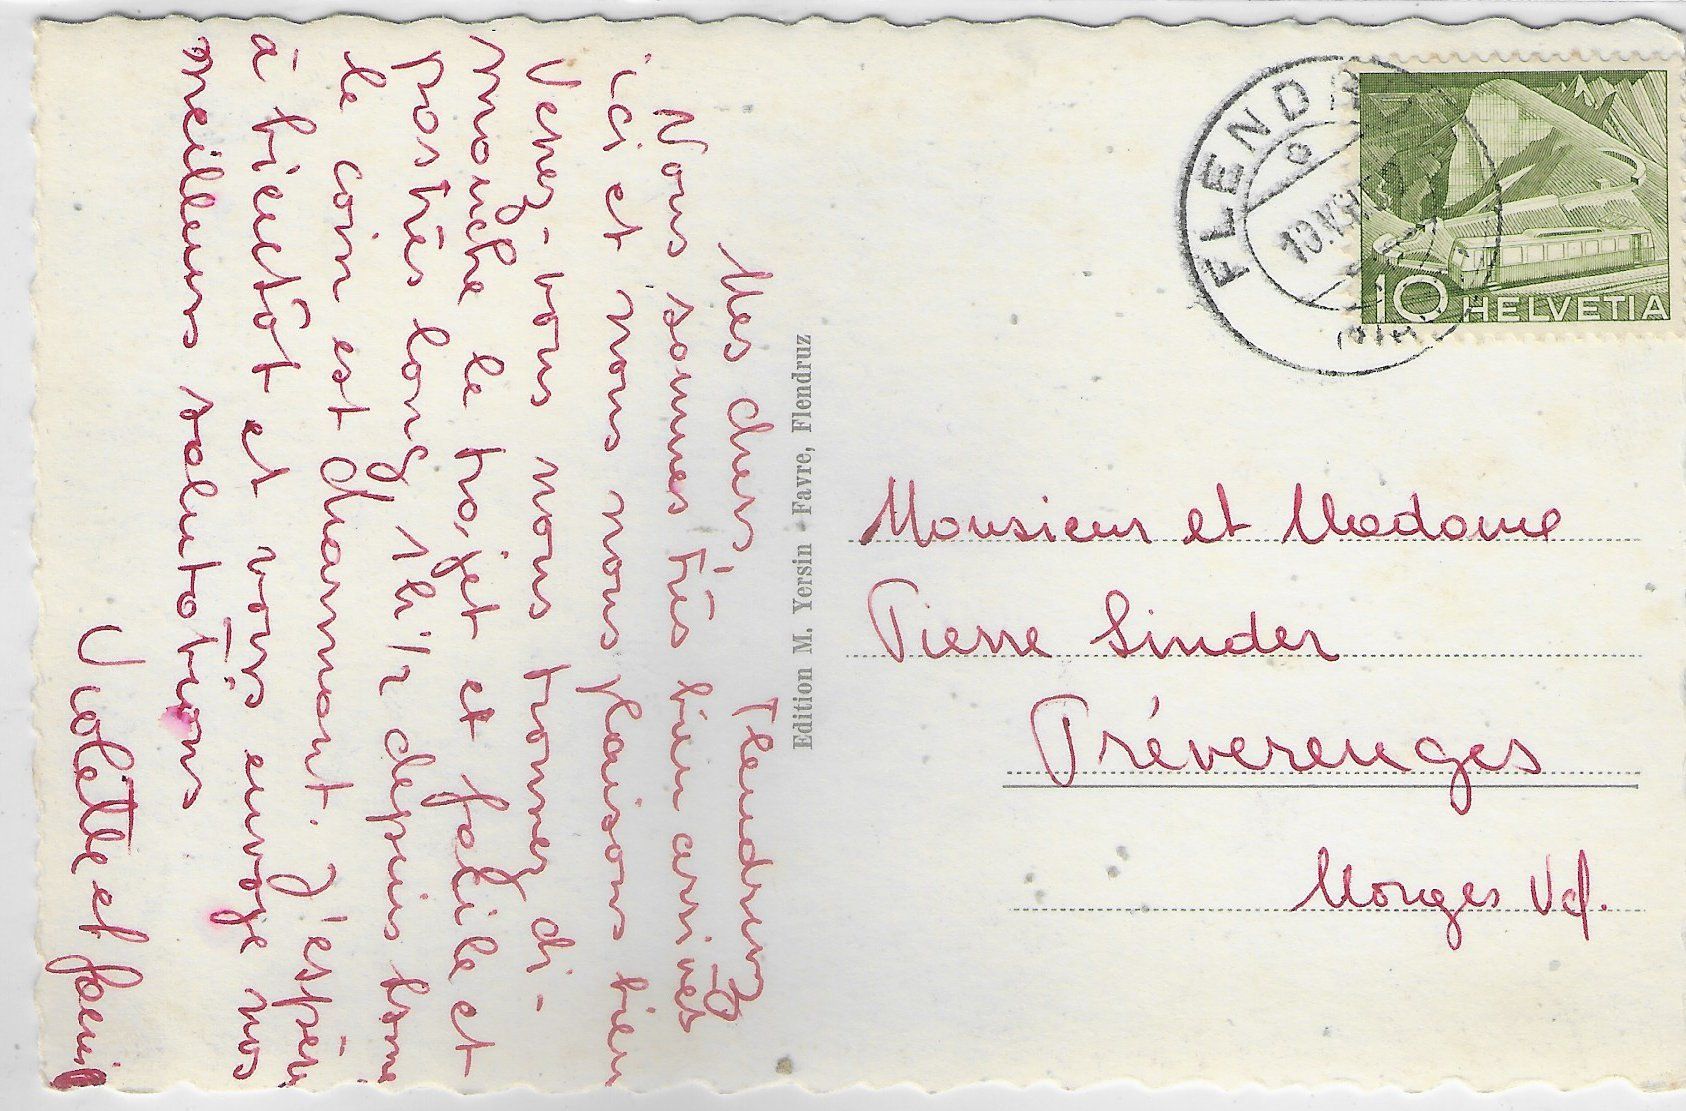 Flendruz
Mes chers,
Nous sommes très bien arrivés
ici et nous nous plaisons bien
Venez-vous nous trouver di-
manche le trajet et facile et
pas très long 1h 1/2 depuis
le coin est charmant. J'espère
à bientôt et vous envoye nos
meilleurs salutations
Violette et famille
Edition M. Yersin-Favre, Flendruz
FLENDR
10.IV.
10 HELVETIA
Monsieur et Madame
Pierre Linder
Préverenges
Morges Vd.